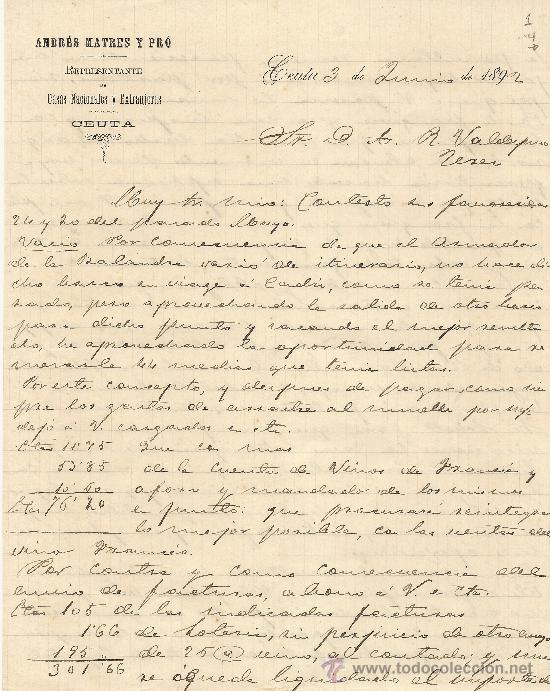 1
4
ANDRÉS MATRES Y PRÓ
REPRESENTANTE
DE
Casas Nacionales y Extranjeras
CEUTA
Ceuta 3 de Junio de 1892
Sr. D. A. R. Valdespino
Jerez
Muy Sr. mio: Contesto sus favorecidas
24 y 20 del pasado Mayo.
Vacio Por consecuencia de que el Armador
de la Balandra varió de itinerario, no hace di
cho barco su viage á Cadiz, como se tenia pen
sado, pero aprovechando la salida de otro barco
para dicho punto y sacando el mejor resulta
do, he aprovechado la oportunidad para re
mesarle 44 medias que tenia listas.
Por este concepto, y despues de pagar, como siem
pre los gastos de arrastre al muelle por
dejo á V. cargados en cta.
Ctas 11'75
53'85 de la cuenta de Vinos de Francia y
10'60 aforo y mandado de los mismos
Ctas 76'20 en junto: que procuraré reintegrar
lo mejor posible, con las ventas del
vino Francés.
Por contra y como consecuencia del
envio de facturas, abono á V. en cta.
Ctas 105 de las indicadas facturas
1'66 de Loteria, sin perjuicio de otro
195 de 25 @ vino, al contado y que
301'66 se queda liquidado el importe de
todocoleccion
www.todocoleccion.net